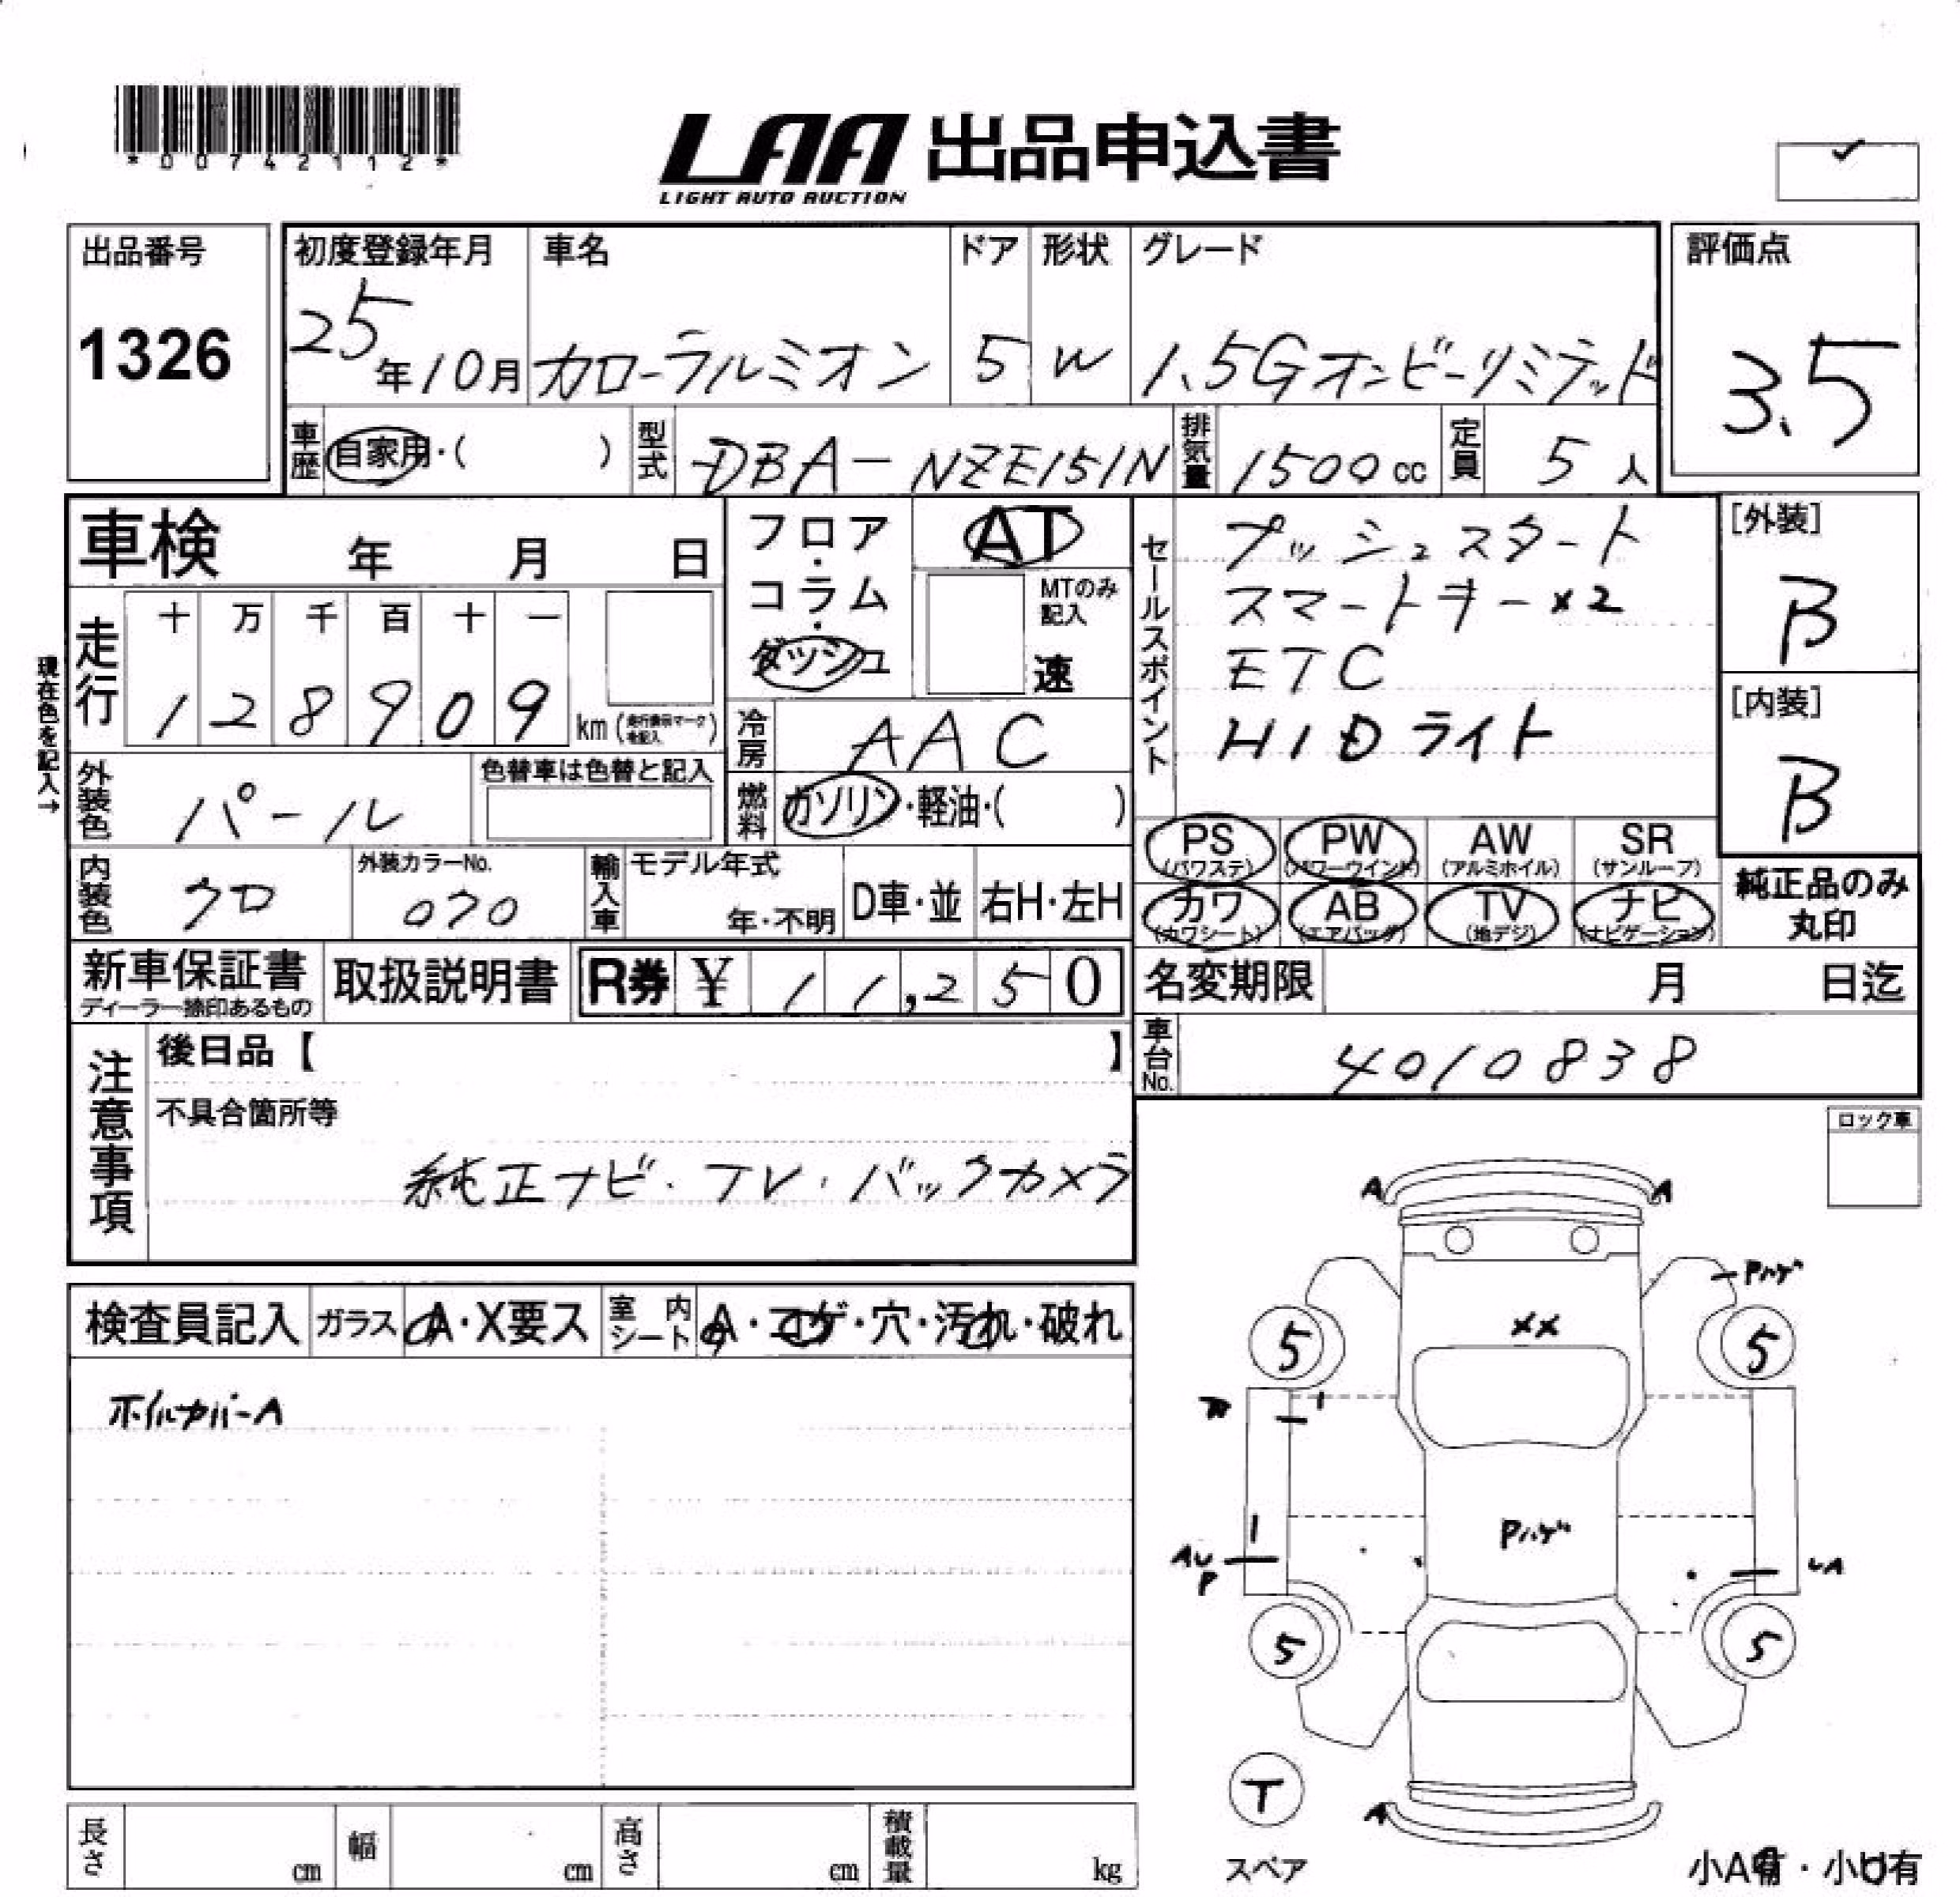 *00742112*
LAA 出品申込書
LIGHT AUTO AUCTION
出品番号
1326
初度登録年月
25年10月
車名
カローラルミオン
ドア
5
形状
W
グレード
1.5Gオンビーリミテッド
評価点
3.5
車歴 自家用・( )
型式 DBA-NZE151N
排気量 1500cc
定員 5人
車検 年 月 日
現在色を記入→
走行
十 万 千 百 十 一
1 2 8 9 0 9 km(走行表示マークを記入)
フロア・コラム・ダッシュ
AT
MTのみ記入
速
冷房 AAC
燃料 ガソリン・軽油・( )
外装色 パール
色替車は色替と記入
内装色 クロ
外装カラーNo.
070
輸入車
モデル年式
年・不明
D車・並
右H・左H
セールスポイント
プッシュスタート
スマートキー×2
ETC
HIDライト
[外装]
B
[内装]
B
PS(パワステ) PW(パワーウインド) AW(アルミホイル) SR(サンルーフ)
カワ(カワシート) AB(エアバッグ) TV(地デジ) ナビ(ナビゲーション)
純正品のみ
丸印
新車保証書
ディーラー捺印あるもの
取扱説明書
R券 ¥ 11,250
名変期限 月 日迄
車台No. 4010838
注意事項
後日品【 】
不具合箇所等
純正ナビ・TV・バックカメラ
ロック車
検査員記入 ガラス A・X要ス 室内シート A・コゲ・穴・汚れ・破れ
ホイルカバーA
A A
Pハゲ
XX
5 5
Pハゲ
AU
P
UA
5 5
T
スペア
A
小A有・小U有
長さ cm 幅 cm 高さ cm 積載量 kg